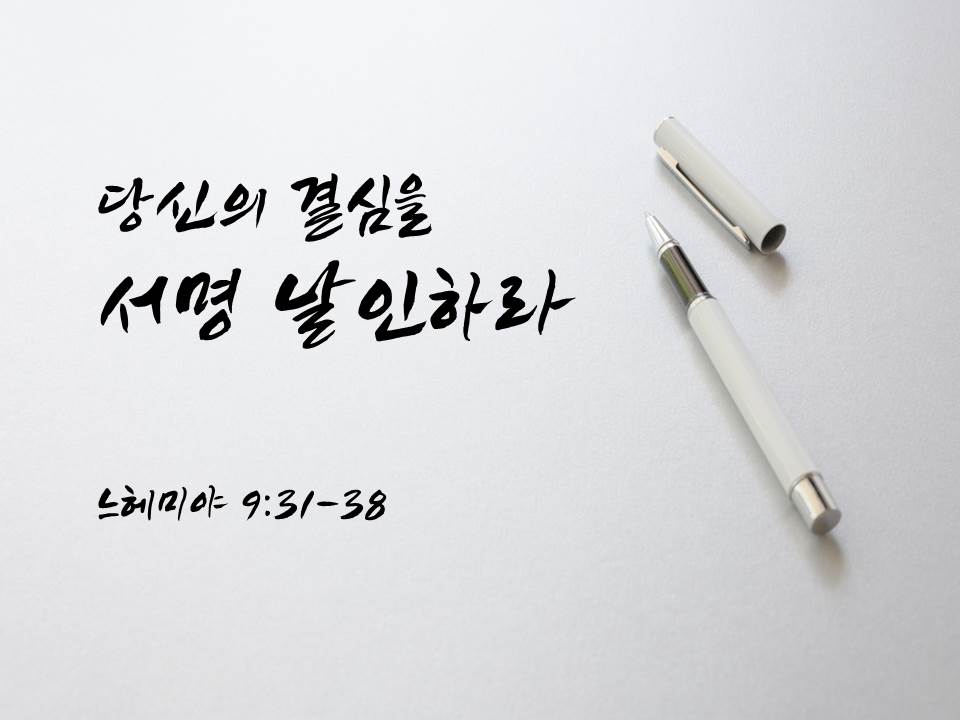 당신의 결심을
서명 날인하라
느헤미야 9:31-38